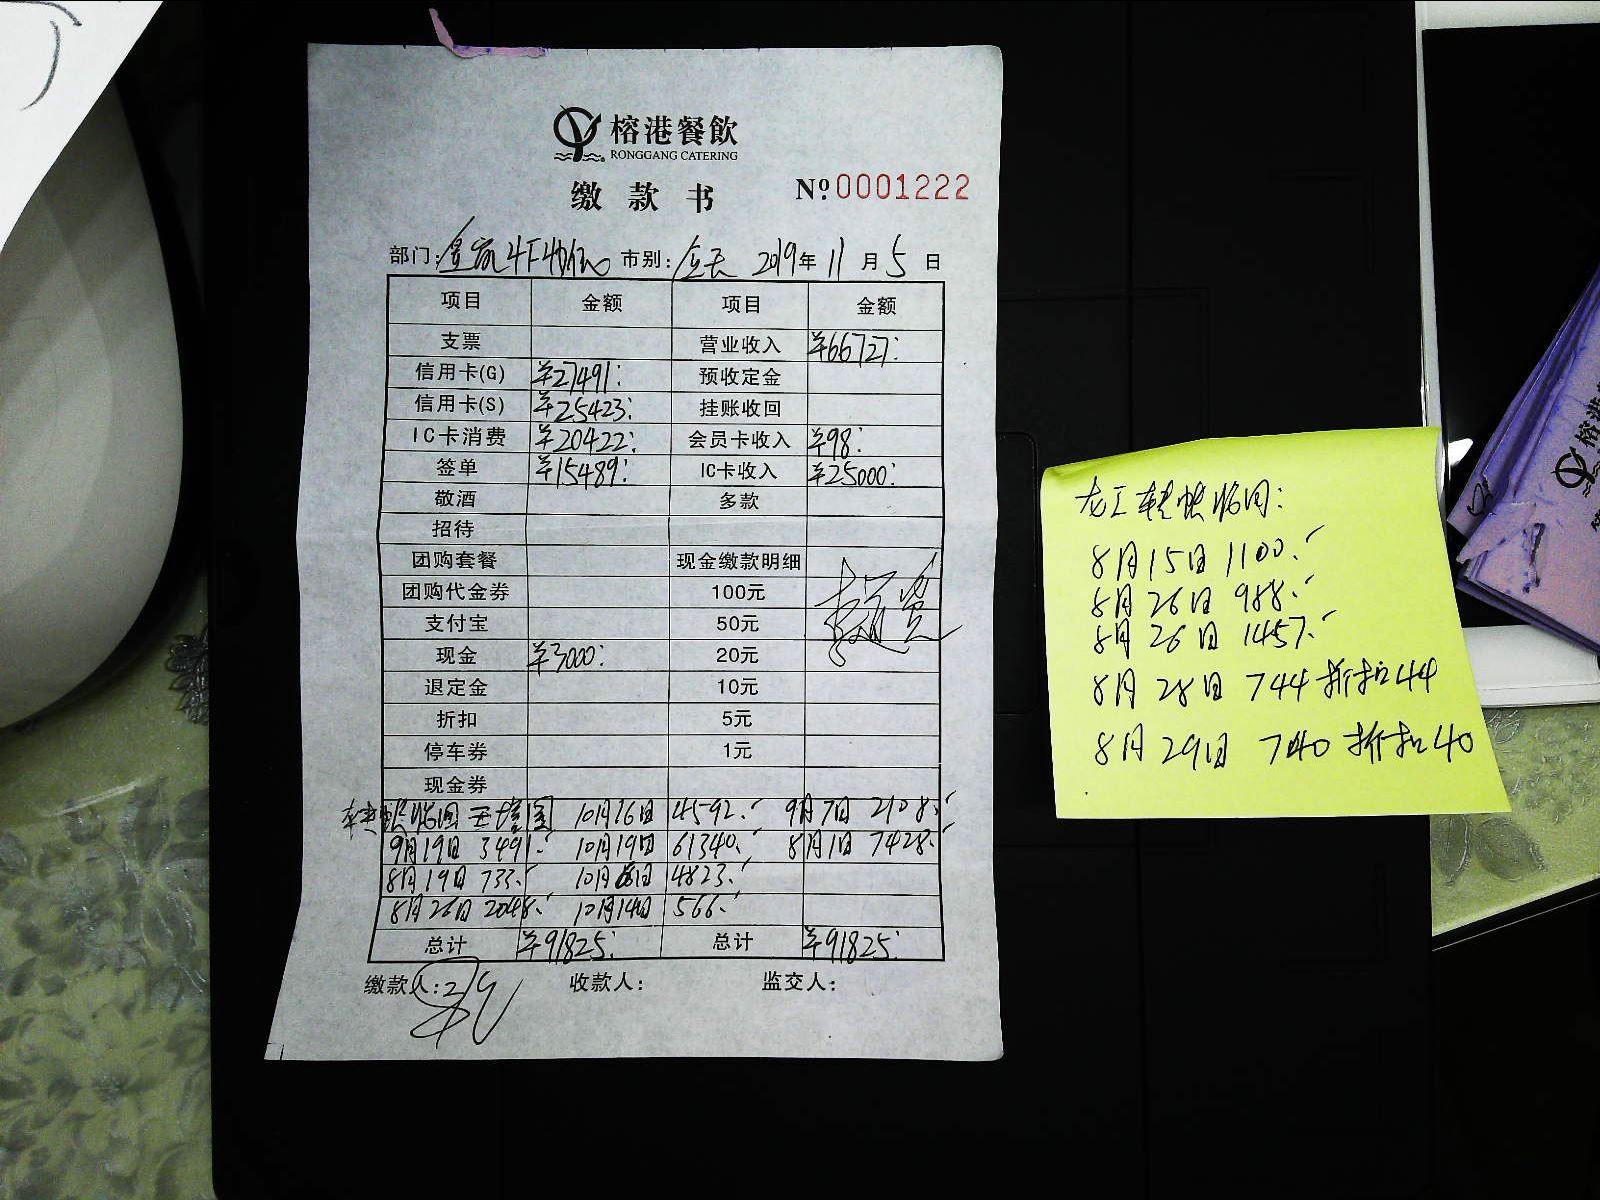 榕港餐飲
RONGGANG CATERING
缴款书
№ 0001222
部门: 市别:全天 2019年11月5日
项目 金额 项目 金额
支票 营业收入 ¥66727:
信用卡(G) ¥27491: 预收定金
信用卡(S) ¥25423: 挂账收回
IC卡消费 ¥20422: 会员卡收入 ¥98:
签单 ¥15489: IC卡收入 ¥25000:
敬酒 多款
招待
团购套餐 现金缴款明细
团购代金券 100元
支付宝 50元
现金 ¥3000: 20元
退定金 10元
折扣 5元
停车券 1元
现金券
10月16日 4592. 9月7日 2108.
9月19日 3491. 10月19日 61340. 8月1日 7428.
8月19日 733. 4823.
8月26日 2048. 10月14日 566.
总计 ¥91825: 总计 ¥91825:
缴款人: 收款人: 监交人:
8月15日 1100.
8月26日 988.
8月26日 1457.
8月28日 744 折扣44
8月29日 740 折扣40
榕港